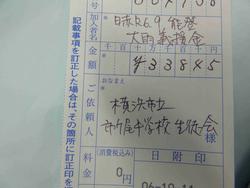 加入者名
日赤R6.9能登
大雨義援金
金額
千百十万千百十円
433845
おなまえ
ご依頼人
横浜市立
市ケ尾中学校生徒会
様
料金
(消費税込み)
0円
日附印
記載事項を訂正した場合は、その箇所に訂正印を